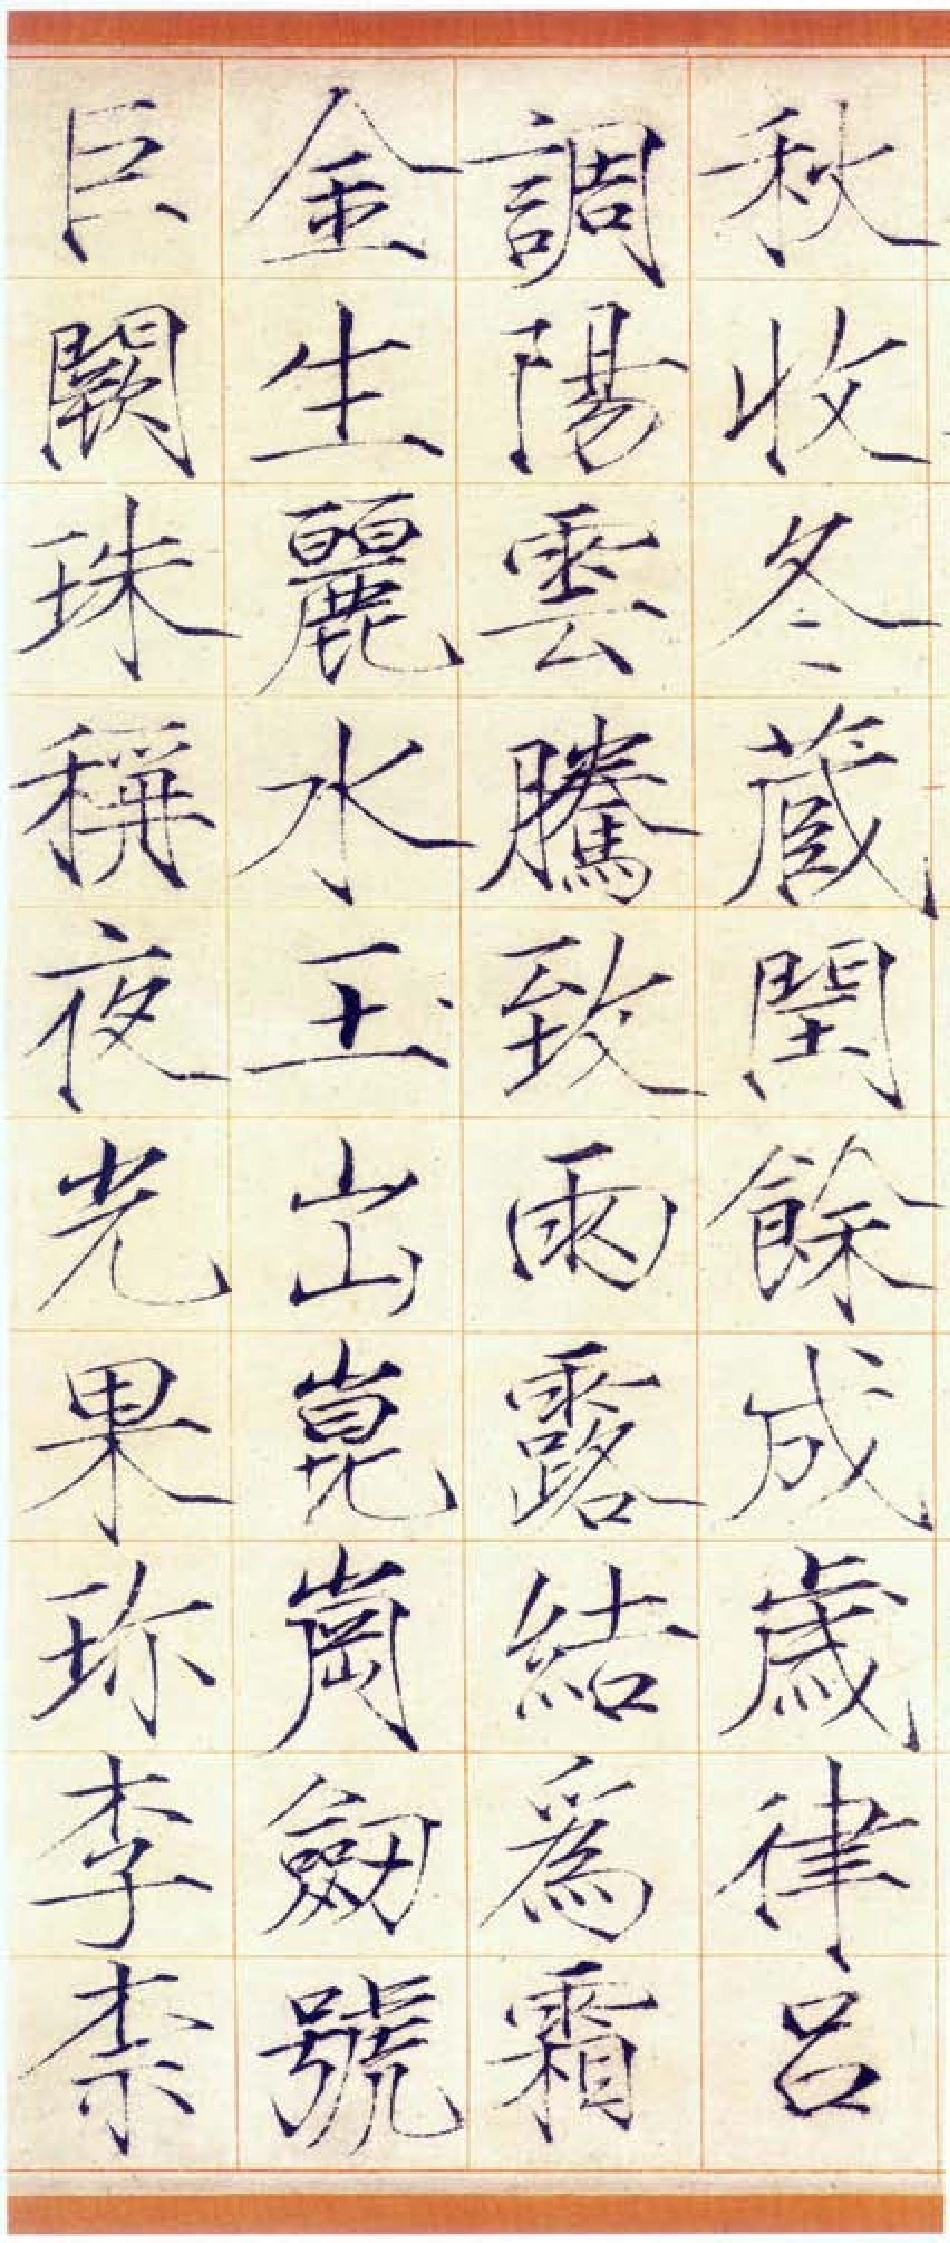 秋收冬藏閏餘成歲律呂
調陽雲騰致雨露結為霜
金生麗水玉出崑崗劒號
巨闕珠稱夜光果珎李柰